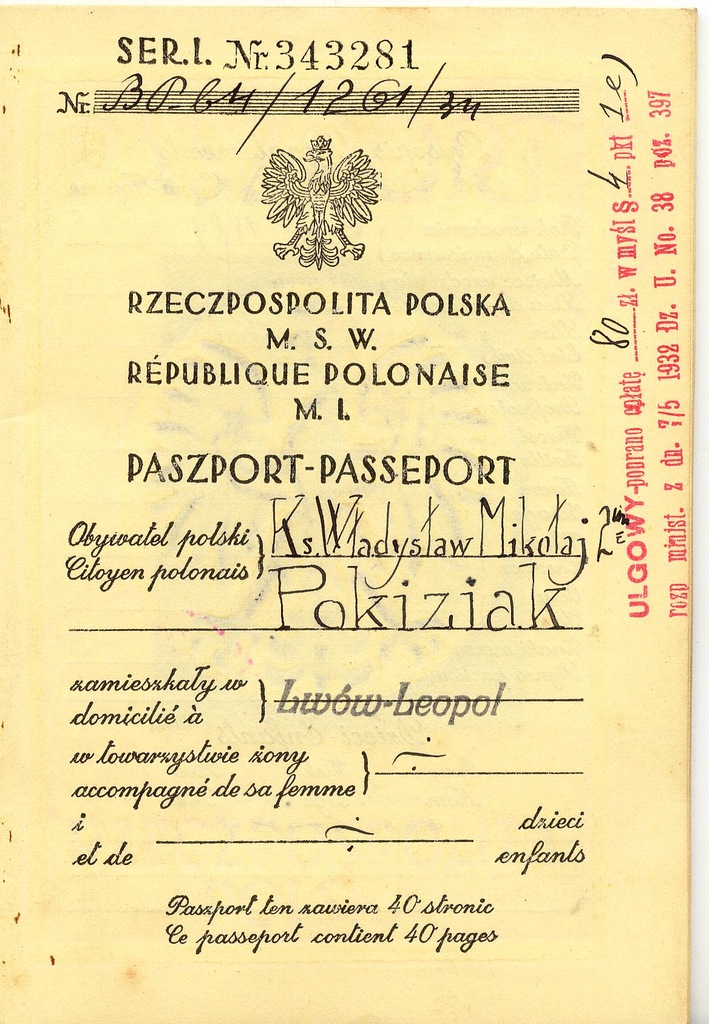 SER.I. Nr. 343281
Nr. BP. 64/1261/34
RZECZPOSPOLITA POLSKA
M. S. W.
RÉPUBLIQUE POLONAISE
M. I.
PASZPORT-PASSEPORT
Obywatel polski
Citoyen polonais
Ks. Władysław Mikołaj
Pokiziak
zamieszkały w
domicilié à
Lwów-Leopol
w towarzystwie żony
accompagné de sa femme
i dzieci
et de enfants
Paszport ten zawiera 40 stronic
Ce passeport contient 40 pages
ULGOWY-pobrano opłatę 80 zł. w myśl § 4 pkt 1e)
rozp minist. z dn. 7/5 1932 Dz. U. No. 38 poz. 397